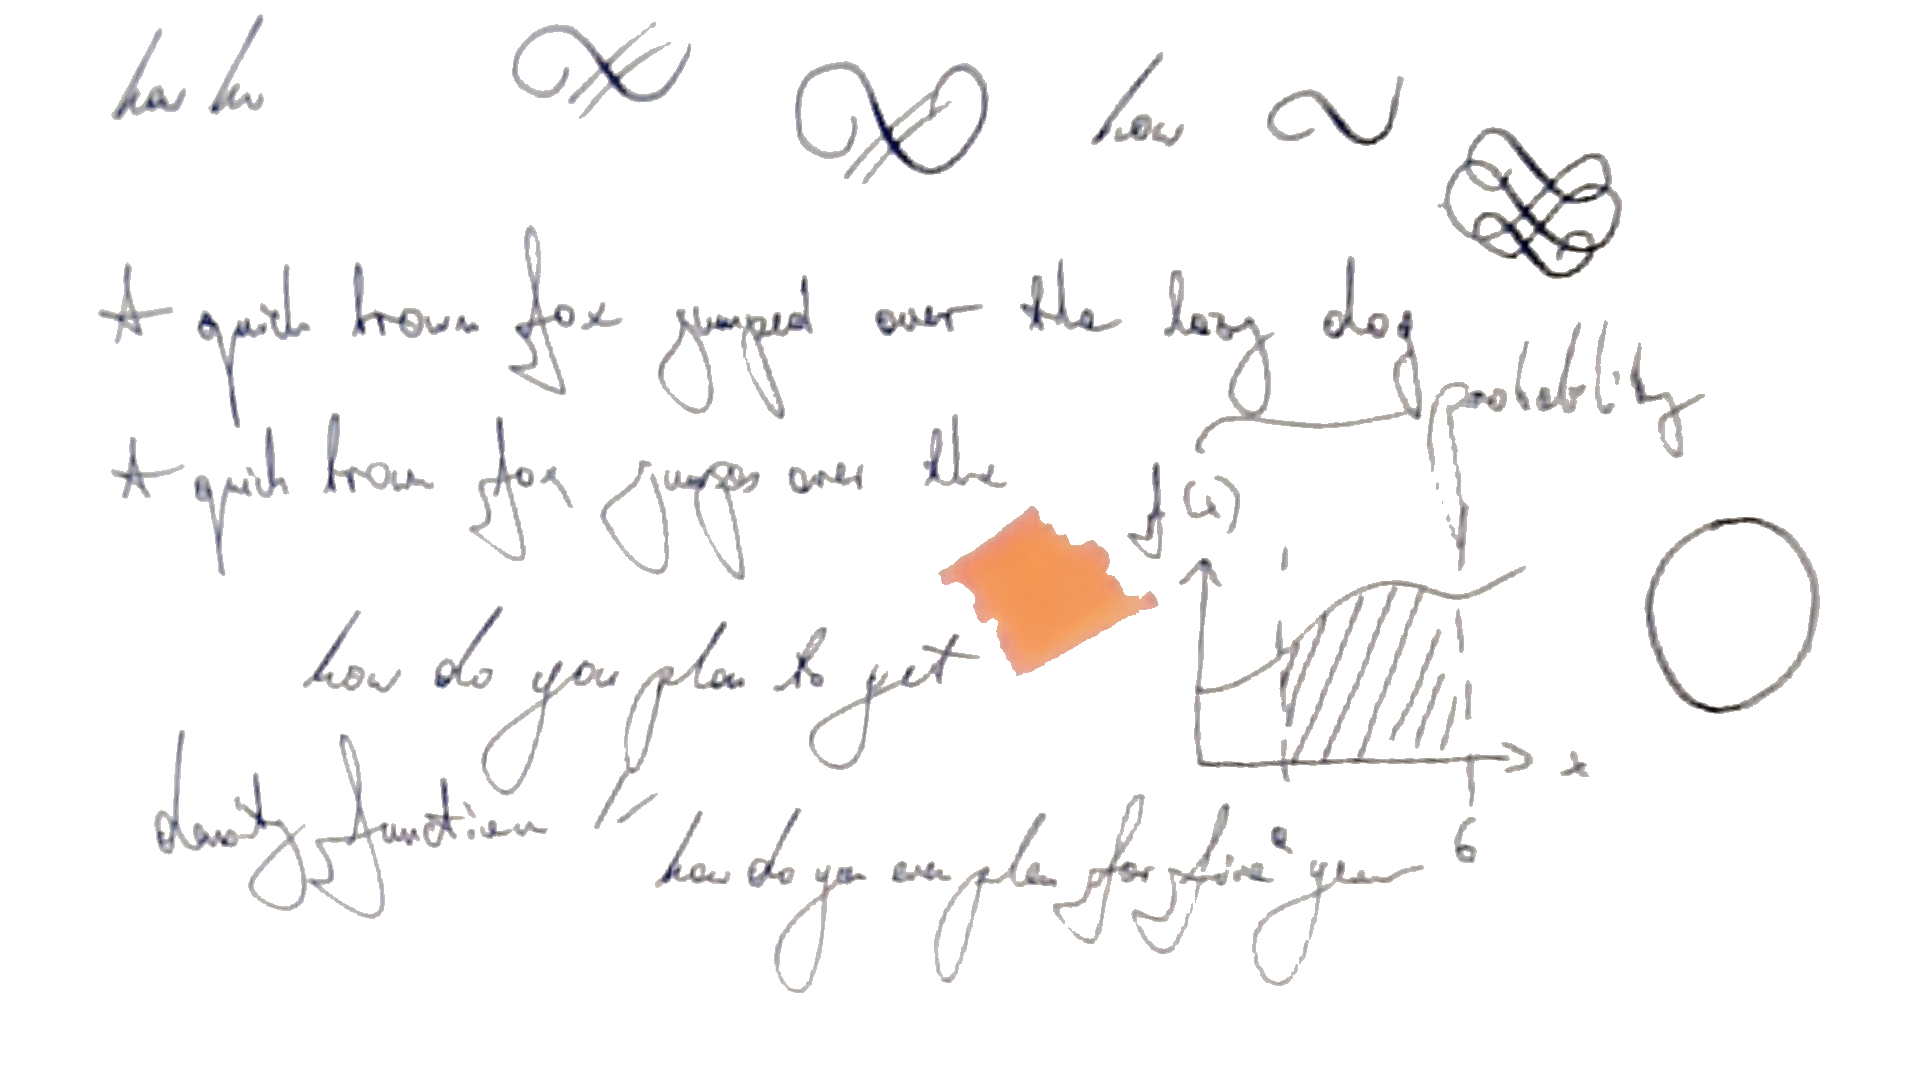 how
A quick brown fox jumped over the lazy dog
probability
A quick brown fox jumps over the
f(x)
how do you plan to get
x
density function
how do you even plan for five year
a
b